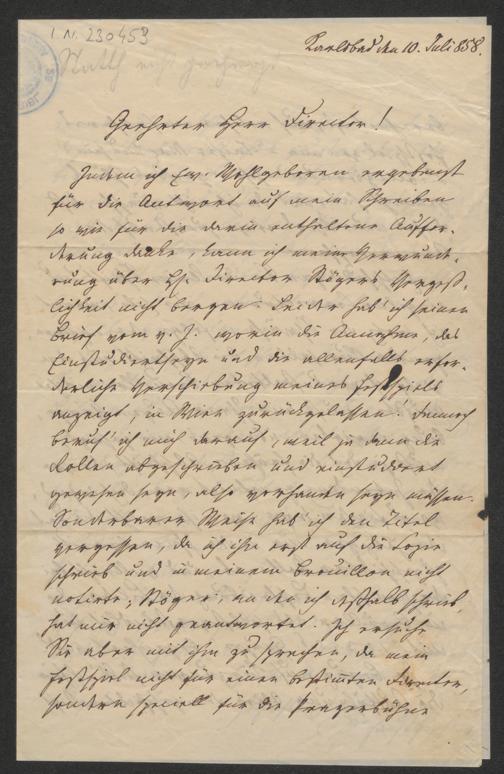 I. N. 230453
Karlsbad den 10. Juli 858.
Geehrter Herr Director!
Indem ich Ew. Wohlgeboren ergebenst
für die Antwort auf mein Schreiben
so wie für die darin enthaltene Auffor-
derung danke, kann ich meine Verwunde-
rung über H. Director Stögers Vergeß-
lichkeit nicht bergen. Leider hab' ich seinen
Brief vom v. J. worin die Annahme, das
Einstudiertseyn und die allenfalls erfor-
derliche Verschiebung meines Festspiels
anzeigt, in Wien zurückgelassen! Dennoch
beruf' ich mich darauf, weil ja dann die
Rollen abgeschrieben und einstudiert
gewesen seyn, also vorhanden seyn müssen.
Sonderbarer Weise hab' ich den Titel
vergessen, da ich ihn erst auf die Copie
schrieb und in meinem Brouillon nicht
notirte; Stöger, an den ich deßhalb schrieb,
hat mir nicht geantwortet. Ich ersuche
Sie aber mit ihm zu sprechen, da mein
Festspiel nicht für einen bestimten Director,
sondern speciell für die Pragerbühne